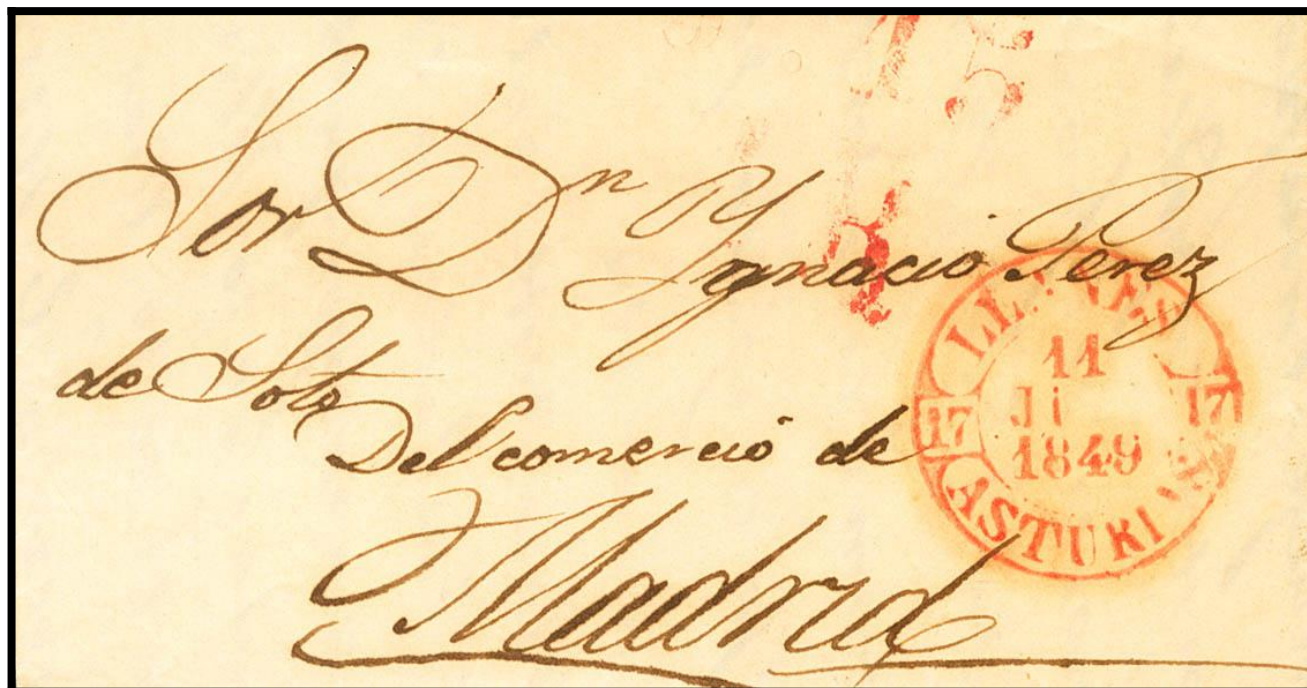 15
Sor Dn Ygnacio Perez
de Soto
Del comercio de
Madrid
11
1849
17 17
ASTURIAS